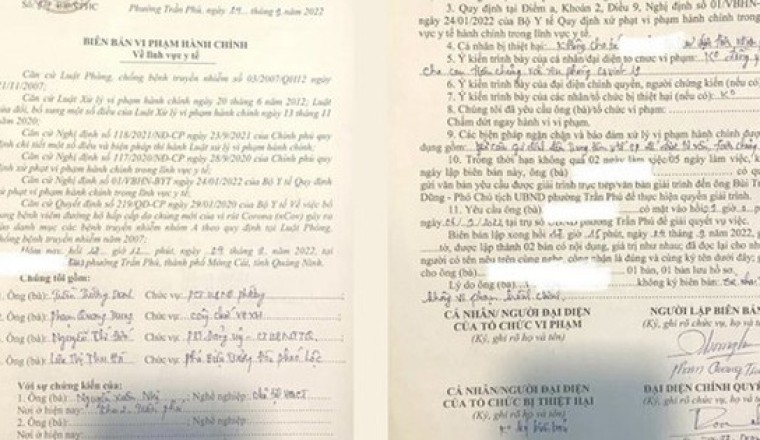 Phường Trần Phú, ngày 29 tháng 8 năm 2022
BIÊN BẢN VI PHẠM HÀNH CHÍNH
Về lĩnh vực y tế
Căn cứ Luật Phòng, chống bệnh truyền nhiễm số 03/2007/QH12 ngày
21/11/2007;
Căn cứ Luật Xử lý vi phạm hành chính ngày 20 tháng 6 năm 2012; Luật
sửa đổi, bổ sung một số điều của Luật Xử lý vi phạm hành chính ngày 13 tháng 11
năm 2020;
Căn cứ Nghị định số 118/2021/NĐ-CP ngày 23/9/2021 của Chính phủ quy
định chi tiết một số điều và biện pháp thi hành Luật Xử lý vi phạm hành chính;
Căn cứ Nghị định số 117/2020/NĐ-CP ngày 28/9/2020 của Chính phủ
xử phạt vi phạm hành chính trong lĩnh vực y tế;
Căn cứ Nghị định số 01/VBHN-BYT ngày 24/01/2022 của Bộ Y tế Quy định
xử phạt vi phạm hành chính trong lĩnh vực y tế;
Căn cứ Quyết định 219/QĐ-CP ngày 29/01/2020 Bộ Y tế Về việc bổ
sung bệnh viêm đường hô hấp cấp do chủng mới của vi rút Corona (nCov) gây ra
vào danh mục các bệnh truyền nhiễm nhóm A theo quy định tại Luật Phòng,
chống bệnh truyền nhiễm năm 2007;
Hôm nay, hồi giờ phút, ngày 29 tháng 8 năm 2022, tại
phường Trần Phú, thành phố Móng Cái, tỉnh Quảng Ninh.
Chúng tôi gồm:
1. Ông (bà): Chức vụ: PCT UBND phường
2. Ông (bà): Phạm Quang Trung Chức vụ: công chức
3. Ông (bà): Nguyễn Thị Chức vụ:
4. Ông (bà): Thị Thu Chức vụ:
Với sự chứng kiến của:
1. Ông (bà): Nguyễn Xuân Nhị; Nghề nghiệp:
Nơi ở hiện nay: Trần phú
2. Ông (bà): ; Nghề nghiệp:
Nơi ở hiện nay:
3. Quy định tại Điểm a, Khoản 2, Điều 9, Nghị định số 01/VBHN-
ngày 24/01/2022 của Bộ Y tế Quy định xử phạt vi phạm hành chính trong
vực y tế hành chính trong lĩnh vực y tế.
4. Cá nhân bị thiệt hại: Không cho
5. Ý kiến trình bày của cá nhân/đại diện tổ chức vi phạm:
cho con tiêm chủng
6. Ý kiến trình bày của đại diện chính quyền, người chứng kiến (nếu có)
7. Ý kiến trình bày của các nhân/tổ chức bị thiệt hại (nếu có): Ko
8. Chúng tôi đã yêu cầu ông (bà)/tổ chức vi phạm:
Chấm dứt ngay hành vi vi phạm.
9. Các biện pháp ngăn chặn và bảo đảm xử lý vi phạm hành chính được
dụng gồm:
10. Trong thời hạn không quá 02 ngày làm việc/05 ngày làm việc,
ngày lập biên bản này, ông (bà)
gửi văn bản yêu cầu được giải trình trực tiếp/văn bản giải trình đến ông Bùi
Dũng - Phó Chủ tịch UBND phường Trần Phú để thực hiện quyền giải trình.
11. Yêu cầu ông (bà) có mặt vào hồi giờ
ngày 2022 tại trụ sở UBND phường Trần Phú để giải quyết vụ việc.
Biên bản lập xong hồi giờ phút, ngày 29 tháng 8 năm 2022,
tờ, được lập thành 02 bản có nội dung, giá trị như nhau; đã đọc lại cho
người có tên nêu trên cùng nghe, công nhận là đúng và cùng ký tên dưới đây;
cho ông (bà) 01 bản, 01 bản lưu hồ sơ.
Lý do ông (bà) không ký biên bản:
không vi phạm hành chính
CÁ NHÂN/NGƯỜI ĐẠI DIỆN
CỦA TỔ CHỨC VI PHẠM
(Ký, ghi rõ họ và tên)
NGƯỜI LẬP BIÊN BẢN
(Ký, ghi rõ chức vụ, họ và
Phạm Quang
CÁ NHÂN/NGƯỜI ĐẠI DIỆN
CỦA TỔ CHỨC BỊ THIỆT HẠI
(Ký, ghi rõ họ và tên)
ĐẠI DIỆN CHÍNH QUYỀN
(Ký, ghi rõ chức vụ, họ và